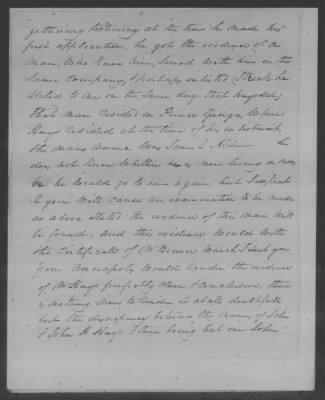 gethering testimony at the time he made his
first application, he got the evidence of a
man, who knew him, served with him in the
same Company, & perhaps enlisted (I think he
stated to me on the same day that Hays did,)
That man resided in Prince George, where
Hays resided at the time of his enlistment,
the mans name was Saml L. he
does not know whether he is now living or not,
he would go to him again, but I
if you will cause an examination to be made
as above stated the evidence of this man will
be found, and this evidence would with
the Certificate of Mr Brewer which I sent you
from Annapolis would render the evidence
of Mr Hays perfectly clear & conclusive, there
is nothing now to render it at all doubtfull
but the discrepancy between the names of John
& John H. Hays & there being but one John